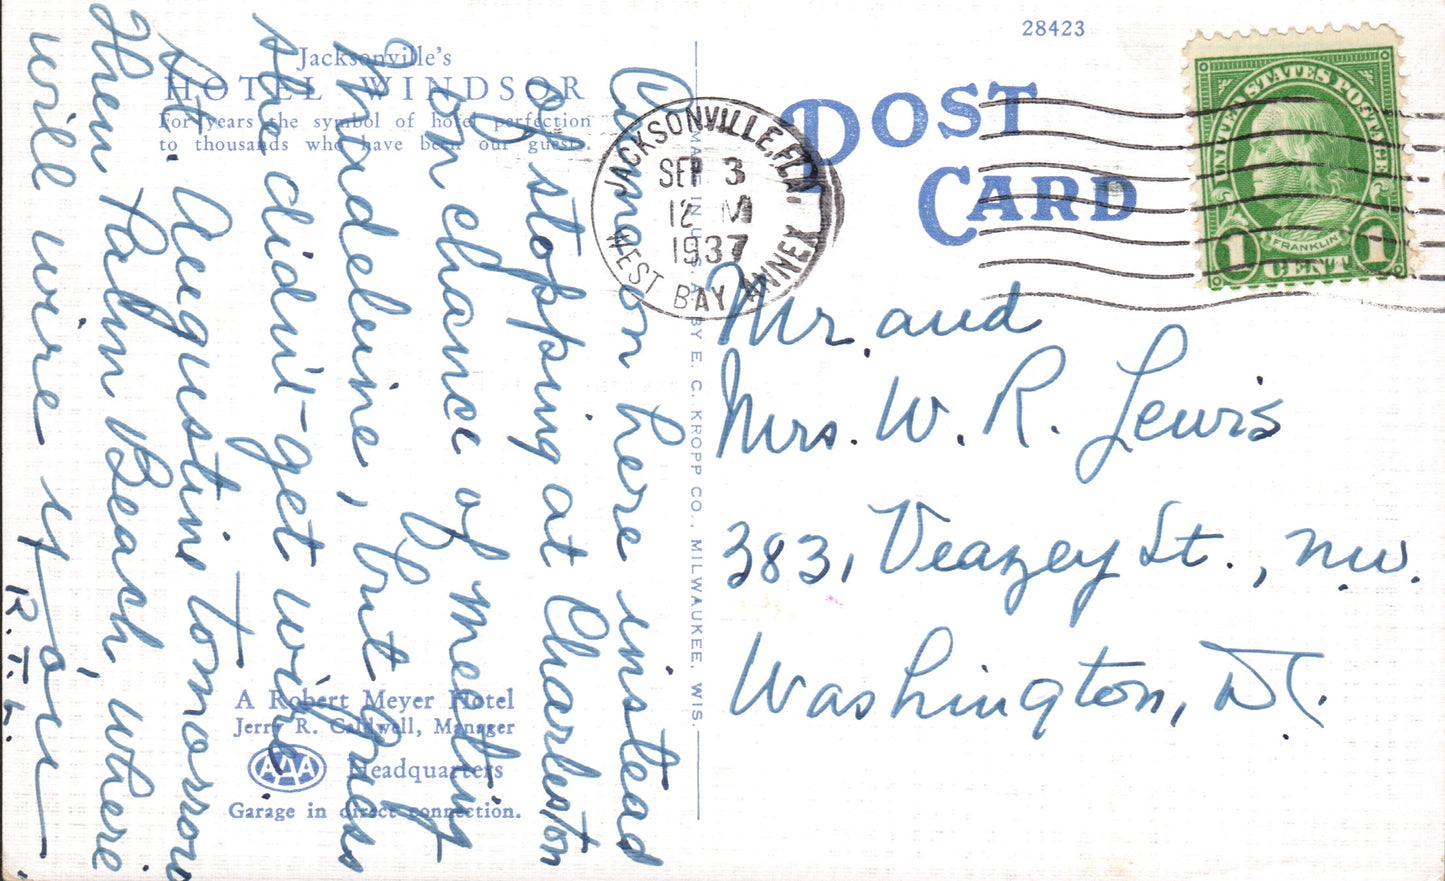 28423
Jacksonville's
HOTEL WINDSOR
For years the symbol of hotel perfection
to thousands who have been our guests.
POST
CARD
JACKSONVILLE, FLA.
SEP 3
12 M
1937
WEST BAY ANNEX
UNITED STATES POSTAGE
FRANKLIN
1 CENT 1
MADE IN U.S.A. BY E. C. KROPP CO., MILWAUKEE, WIS.
Came on here instead
of stopping at Charleston
on chance of meeting
Madeline, but guess
she didn't get wire.
St. Augustine tomorrow
Then Palm Beach, where
will wire if
R.T.L.
Mr. and
Mrs. W. R. Lewis
3831 Veazey St., N.W.
Washington, D.C.
A Robert Meyer Hotel
Jerry R. Caldwell, Manager
AAA Headquarters
Garage in direct connection.